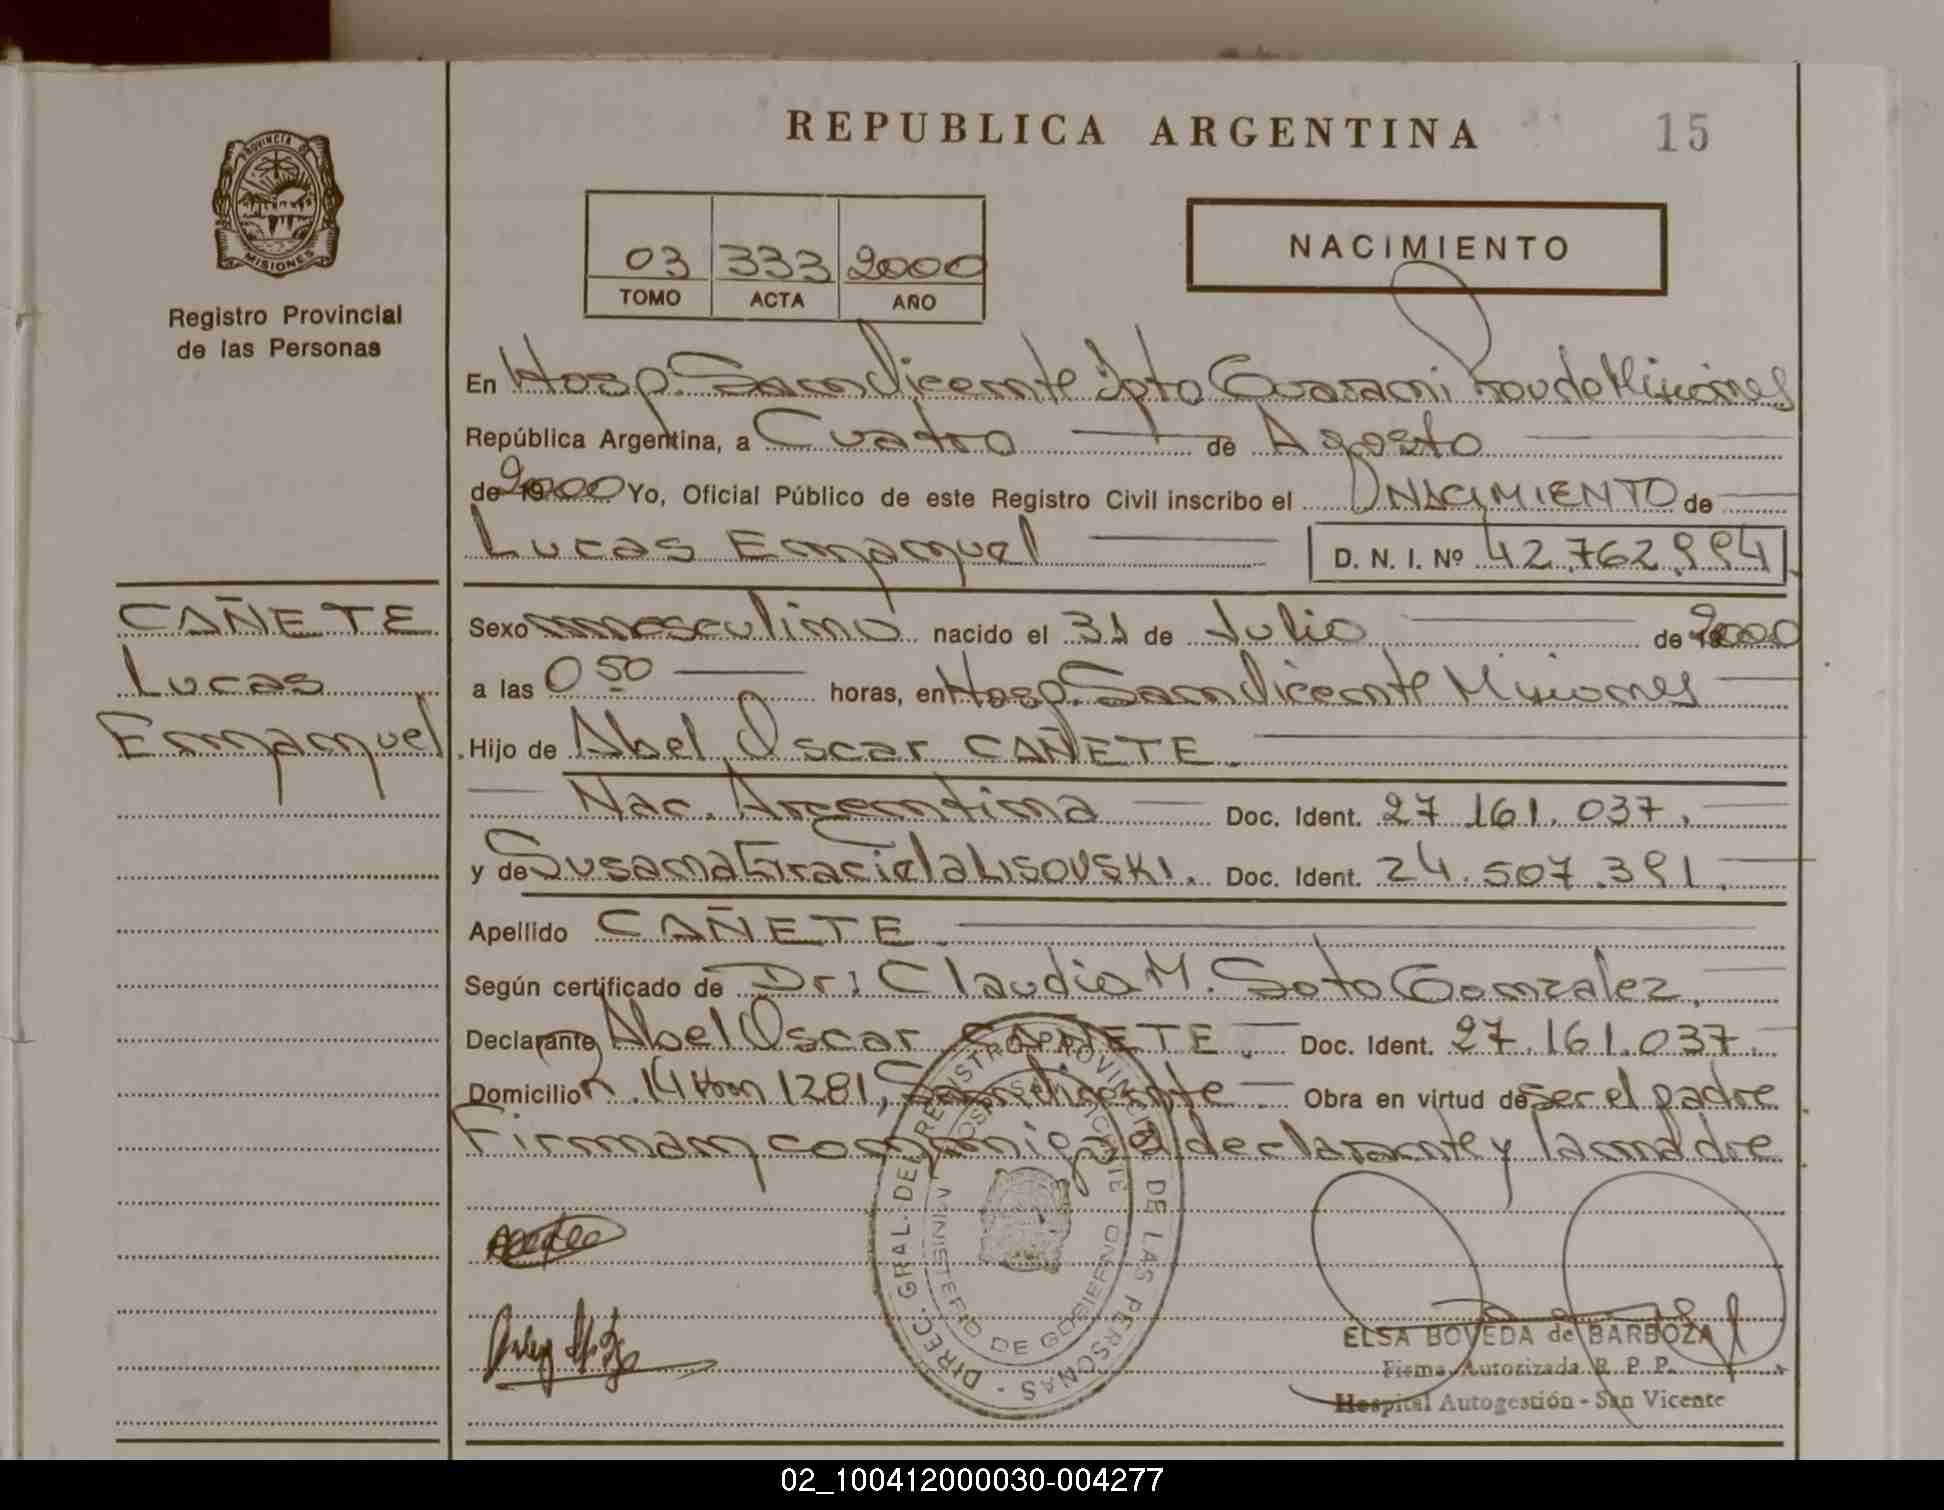 REPUBLICA ARGENTINA
15
PROVINCIA DE
MISIONES
Registro Provincial
de las Personas
03 333 2000
TOMO ACTA AÑO
NACIMIENTO
En Hosp. San Vicente Dpto Guaraní Prov de Misiones
República Argentina, a Cuatro de Agosto
de 2000 Yo, Oficial Público de este Registro Civil inscribo el NACIMIENTO de
Lucas Emmanuel D. N. I. Nº 42.762.994
CAÑETE
Lucas
Emmanuel
Sexo masculino nacido el 31 de Julio de 2000
a las 0 50 horas, en Hosp. San Vicente Misiones
Hijo de Abel Oscar CAÑETE.
Nac. Argentina Doc. Ident. 27.161.037.
y de Susana Graciela LISOVSKI. Doc. Ident. 24.507.391.
Apellido CAÑETE.
Según certificado de Dr: Claudia M. Soto Gonzalez.
Declarante Abel Oscar CAÑETE. Doc. Ident. 27.161.037.
Domicilio R. 14 km 1281, San Vicente Obra en virtud de ser el padre
Firman conmigo el declarante y la madre
DIREC. GRAL. DEL REGISTRO PROVINCIAL DE LAS PERSONAS
MINISTERIO DE GOBIERNO
ELSA BOVEDA de BARBOZA
Firma Autorizada R. P. P.
Hospital Autogestión - San Vicente
02_100412000030-004277